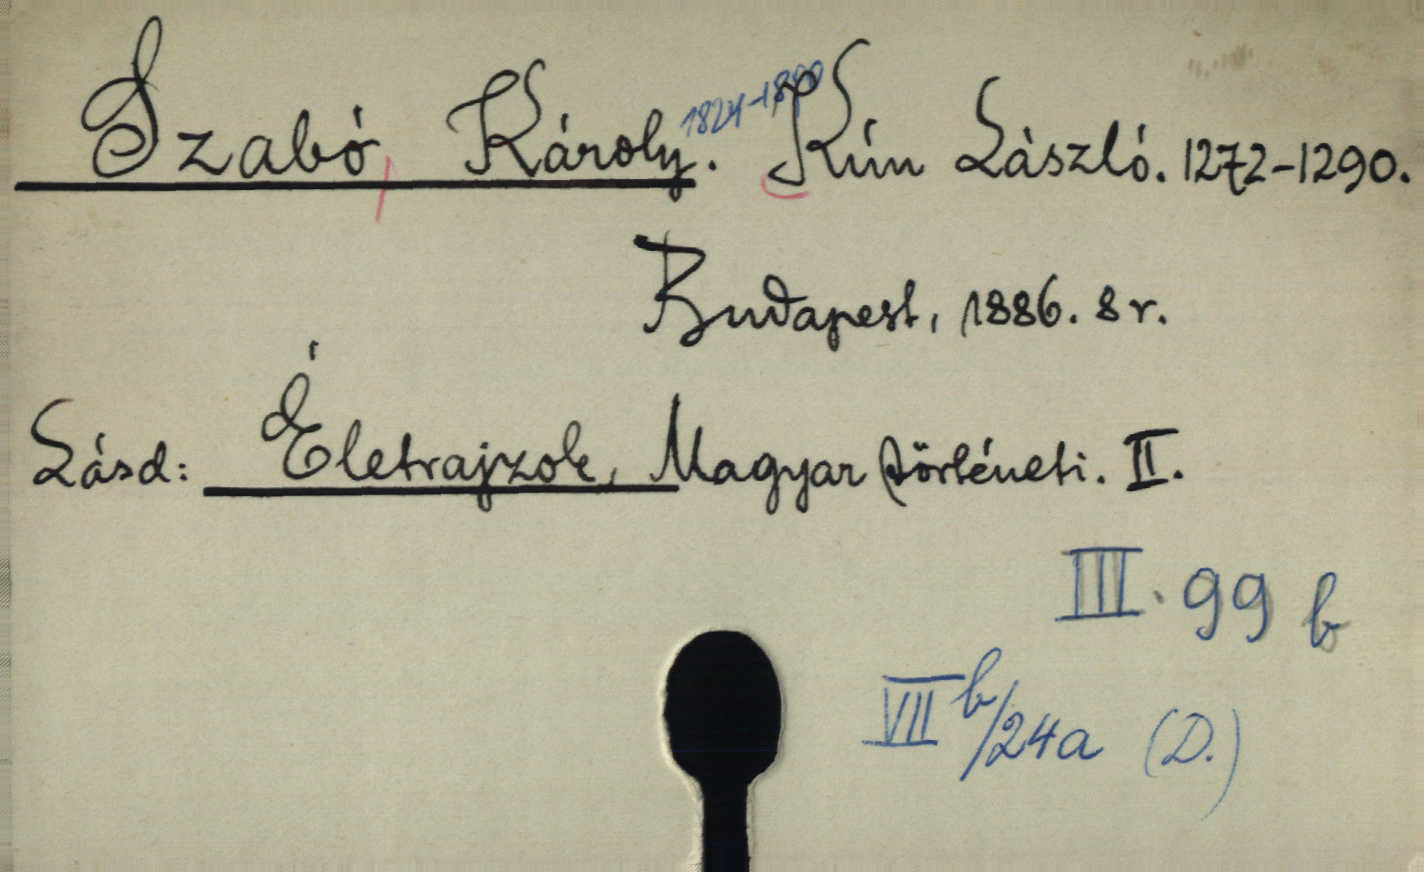 Szabó, Károly. 1824-1890 Kún László. 1272-1290.
Budapest, 1886. 8 r.
Lásd: Életrajzok, Magyar történeti. II.
III. 99 b
VII b/24a (D.)